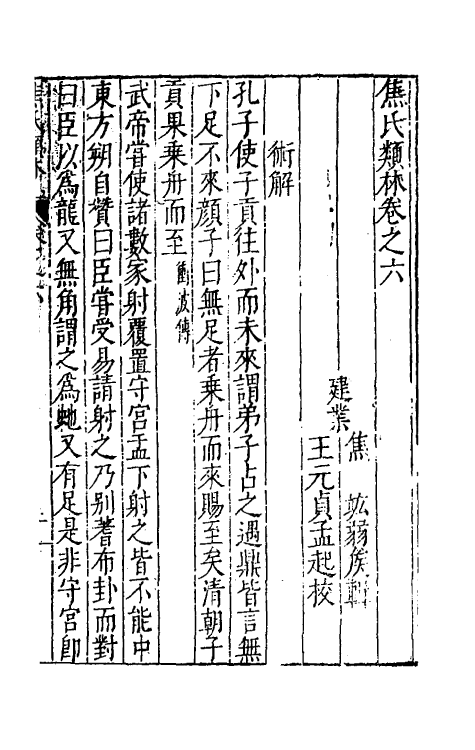 焦氏類林卷之六
建業
焦竑弱侯輯
王元貞孟起校
術解
孔子使子貢往外而未來謂弟子占之遇鼎皆言無
下足不來顏子曰無足者乘舟而來賜至矣清朝子
貢果乘舟而至衝波傳
武帝嘗使諸數家射覆置守宮盂下射之皆不能中
東方朔自贊曰臣嘗受易請射之乃別蓍布卦而對
曰臣以爲龍又無角謂之爲虵又有足是非守宮卽